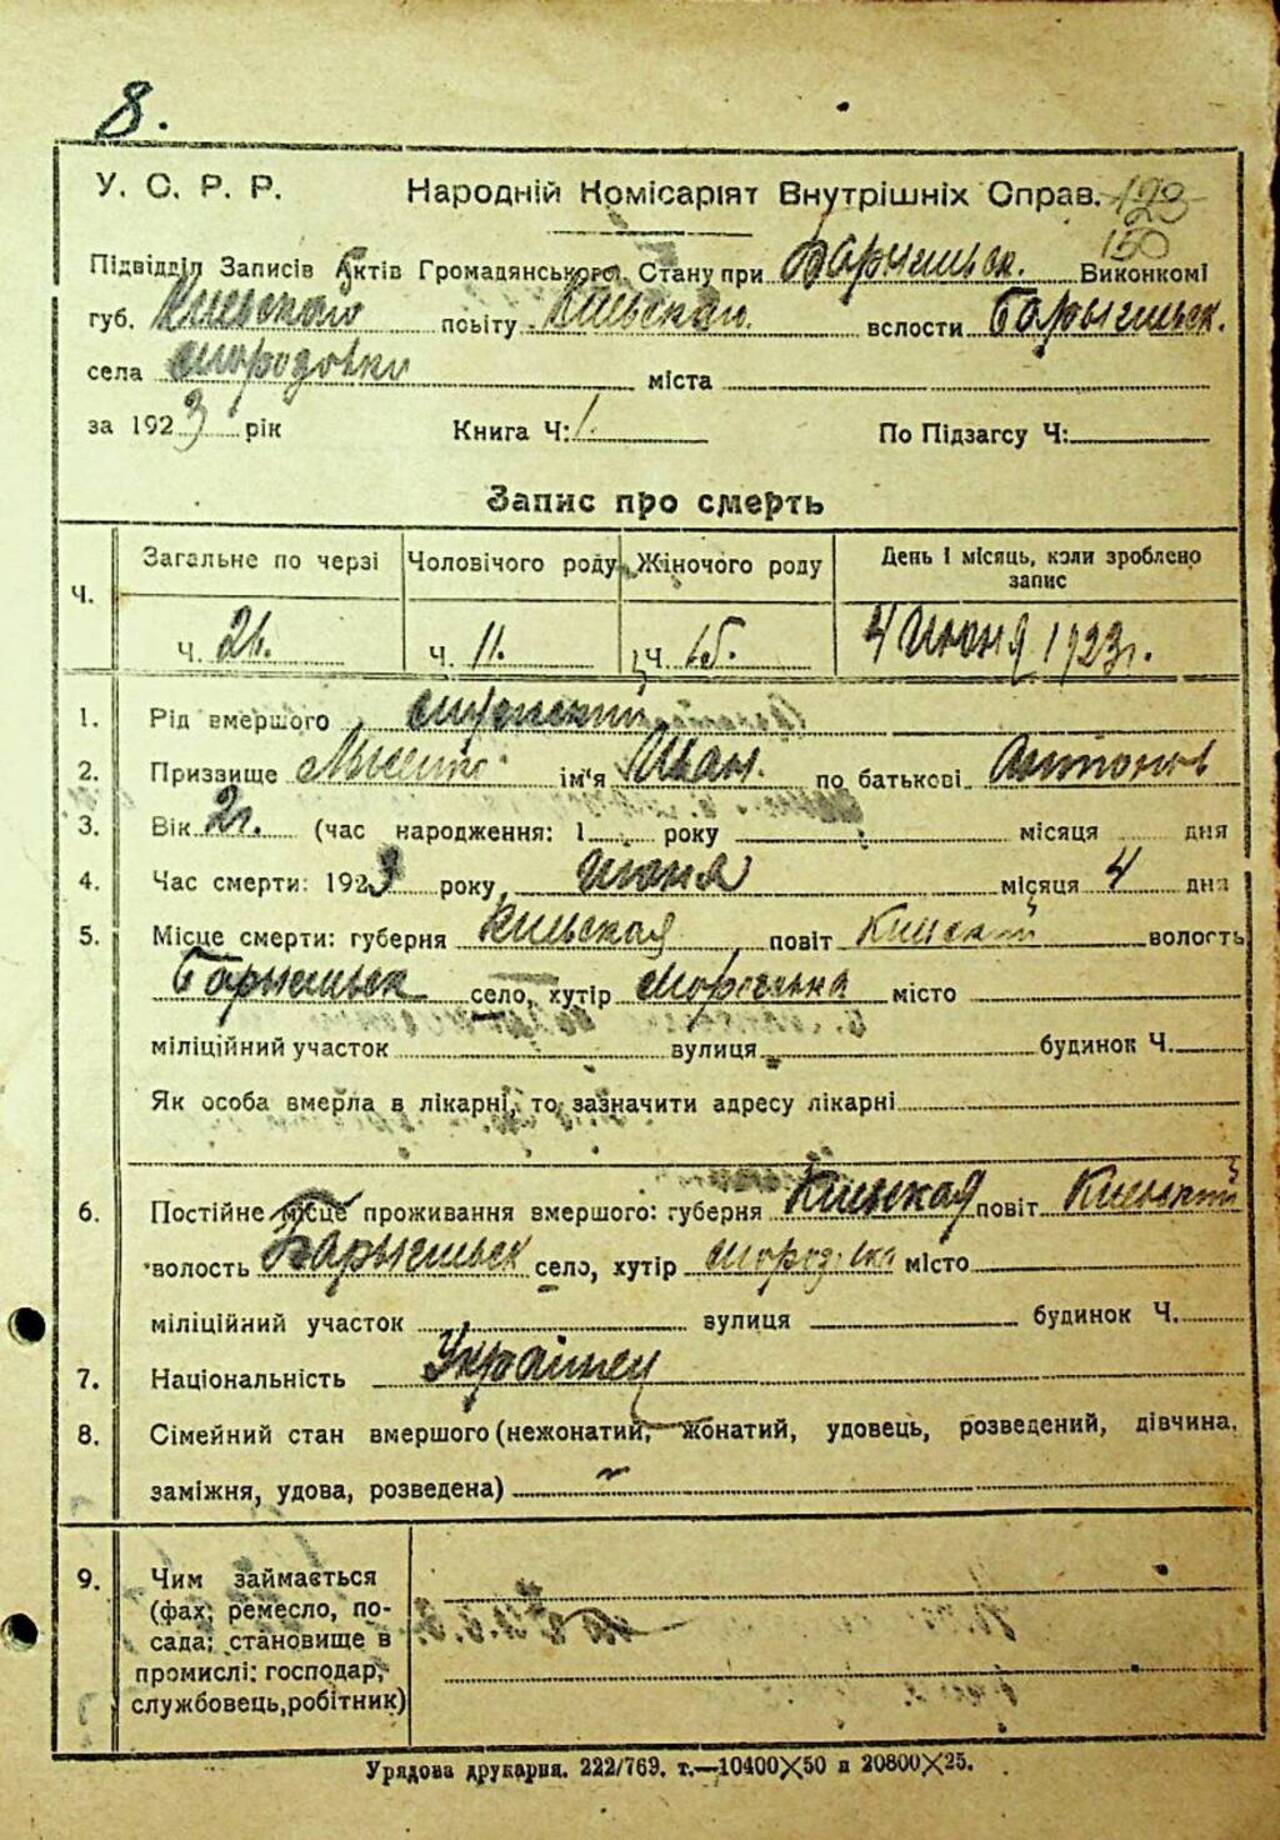 8.
У. С. Р. Р. Народній Комісаріят Внутрішніх Справ. 123
150
Підвідділ Записів Актів Громадянського Стану при Виконкомі
губ. Киевского повіту Киевскаго вслости
села за 1923 рік міста
Книга Ч: 1. По Підзагсу Ч:
Запис про смерть
Ч. Загальне по черзі Чоловічого роду Жіночого роду День і місяць, коли зроблено запис
ч. 26. ч. 11. ч. 15. 4 Июня 1923г.
1. Рід вмершого мужеский
2. Призвище ім'я Иван. по батькові Антонов
3. Вік 2г. (час народження: 1 року місяця дня
4. Час смерти: 1923 року, Июня місяця 4 дня
5. Місце смерти: губерня Киевская повіт Киевский волость
село, хутір місто
міліційний участок вулиця будинок Ч.
Як особа вмерла в лікарні, то зазначити адресу лікарні
6. Постійне місце проживання вмершого: губерня Киевская повіт Киевский
волость село, хутір місто
міліційний участок вулиця будинок Ч.
7. Національність Українец
8. Сімейний стан вмершого (нежонатий, жонатий, удовець, розведений, дівчина,
заміжня, удова, розведена)
9. Чим займається
(фах; ремесло, по-
сада; становище в
промислі: господар,
службовець, робітник)
Урядова друкарня. 222/769. т.—10400×50 и 20800×25.